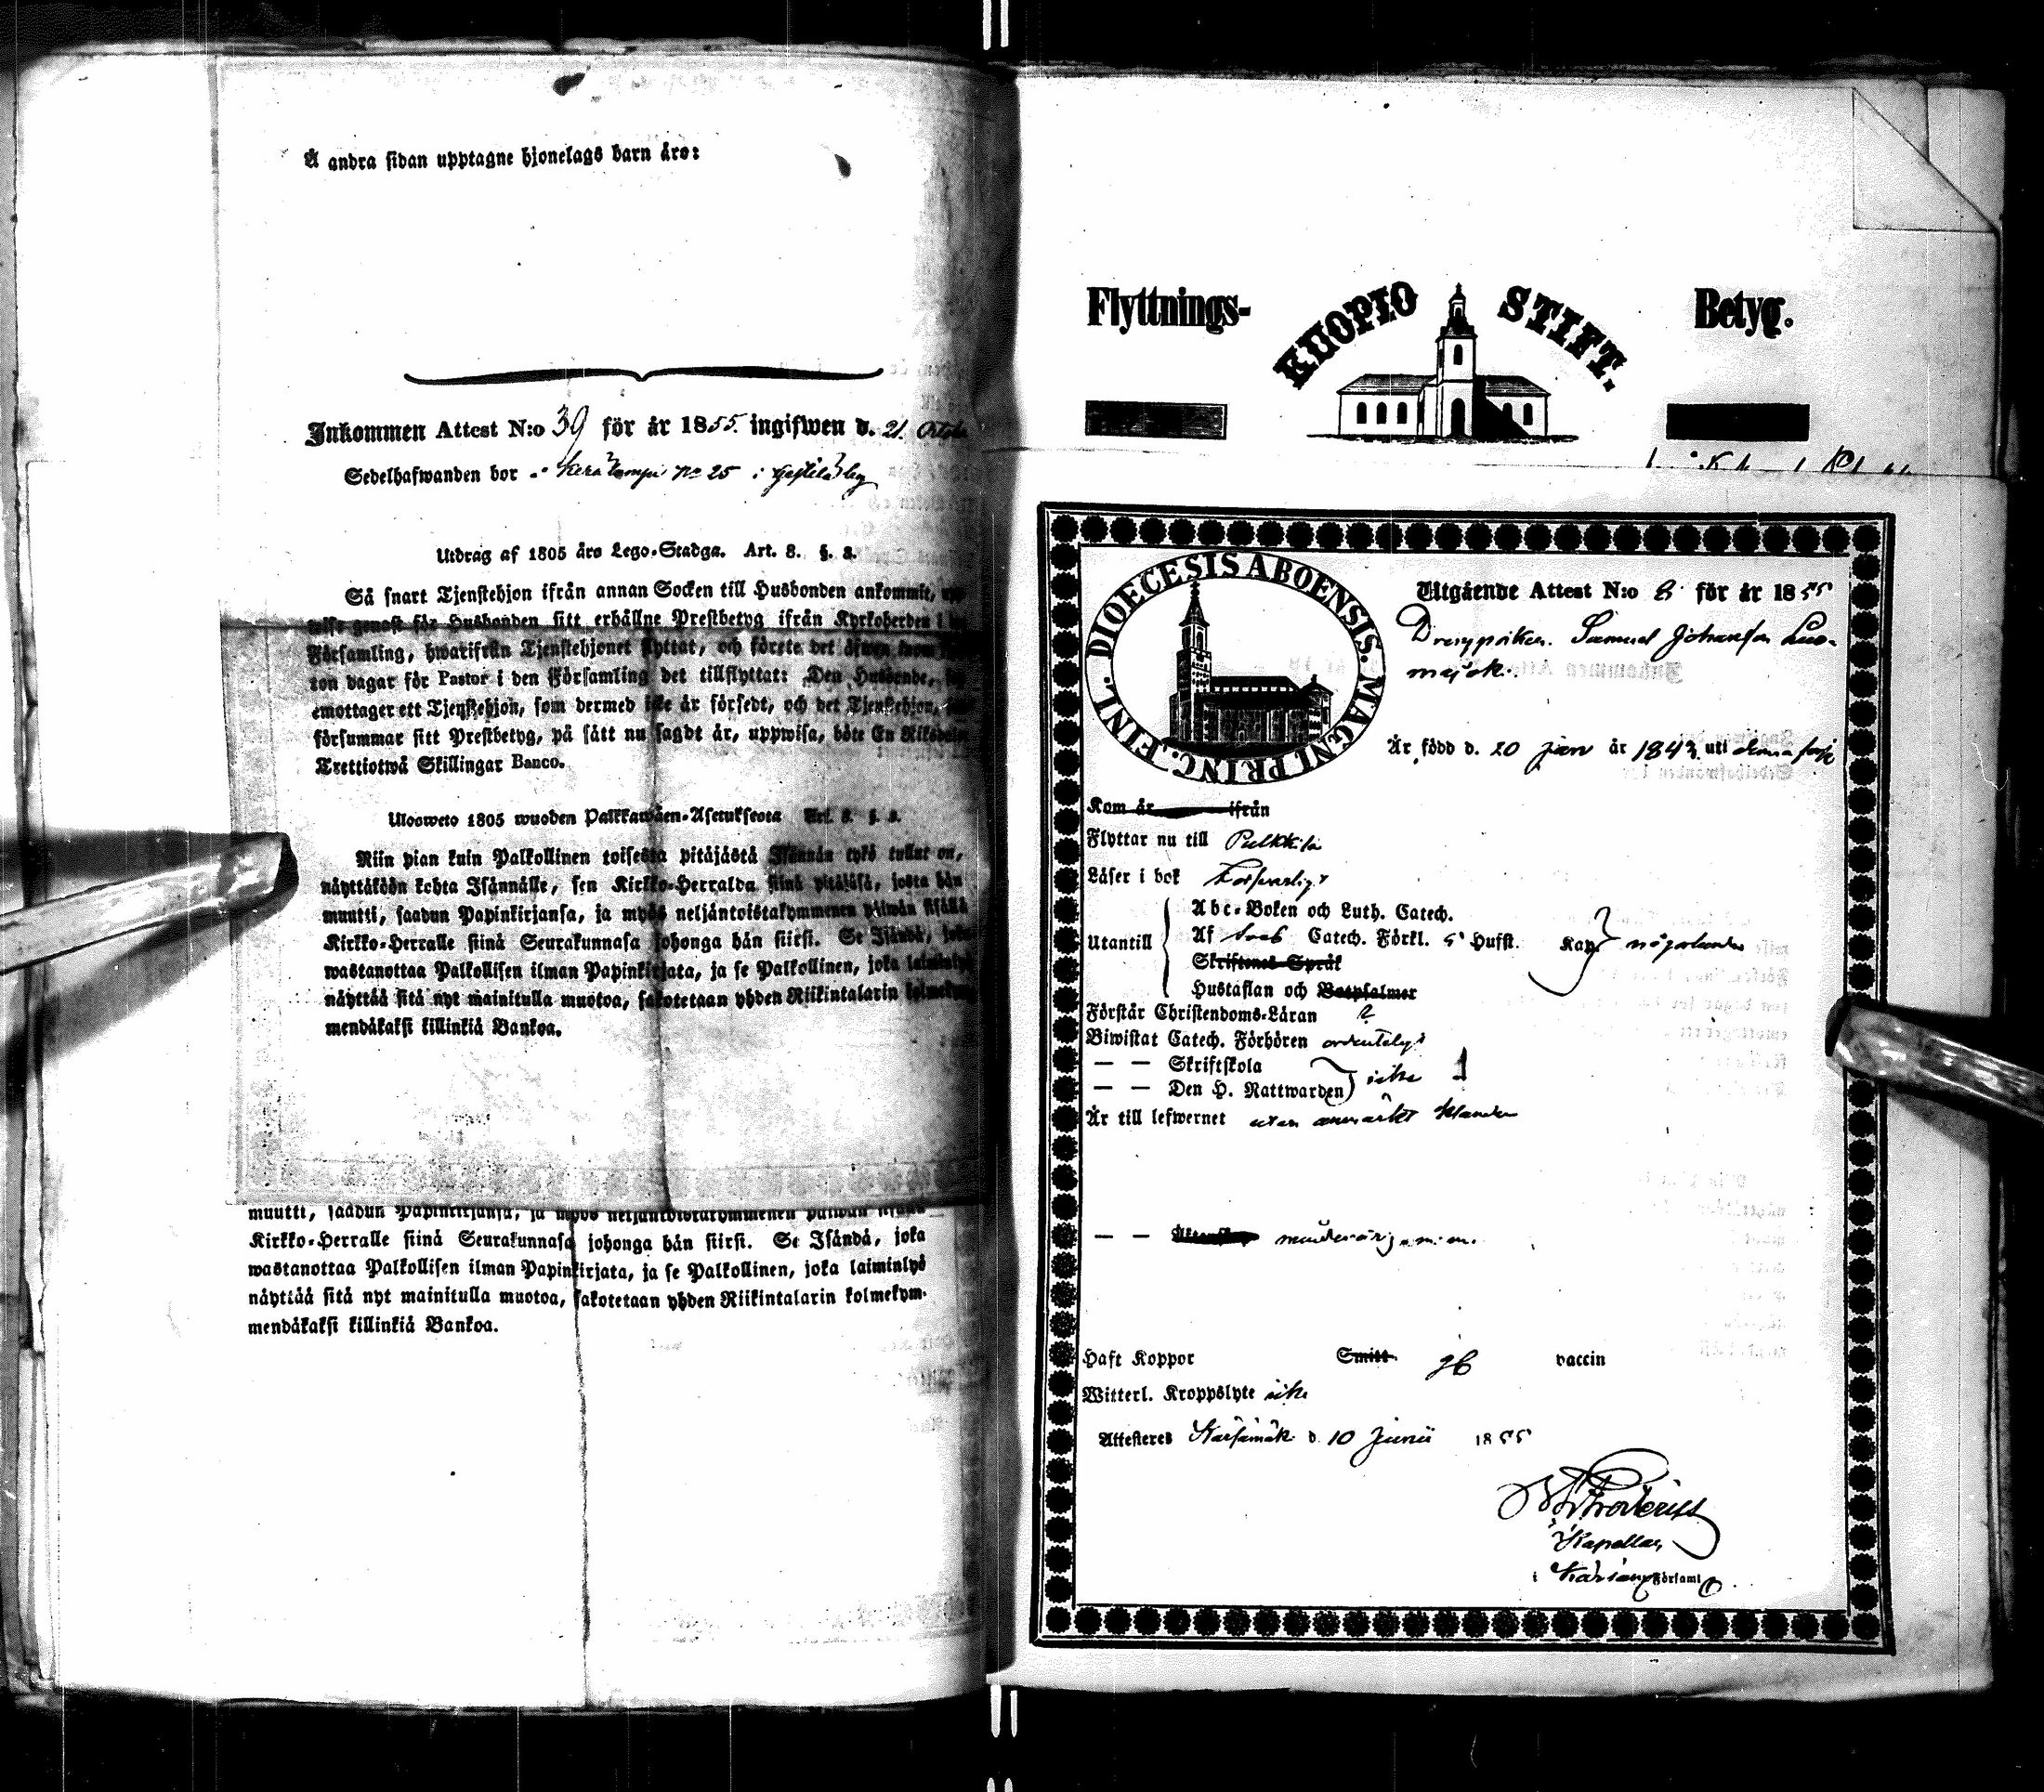 Å andra sidan upptagne hjonelags barn äro:
Inkommen Attest N:o 39 för år 1855 ingifwen d. 21. Octob
Sedelhafwanden bor i Kerälampi No 25 i
Utdrag af 1805 års Lego-Stadga. Art. 8. §. 8.
Så snart Tjenstehjon ifrån annan Socken till Husbonden ankommit,
wise genast för Husbonden sitt erhållne Prestbetyg ifrån Kyrkoherden i
Församling, hwarifrån Tjenstehjonet flyttat, och förete det äfwen inom
ton dagar för Pastor i den Församling det tillflyttat: Den Husbonde,
emottager ett Tjenstehjon, som dermed icke är försedt, och det Tjenstehjon,
försummar sitt Prestbetyg, på sätt nu sagdt är, uppwisa, böte En Riksdaler
Trettiotwå Skillingar Banco.
Ulosweto 1805 wuoden Palkkawäen-Asetuksesta Art. 8. §. 8.
Niin pian kuin Palkollinen toisesta pitäjästä Isännän tykö tullut on,
näyttäköön kohta Isännälle, sen Kirkko-Herralda siinä pitäjäsä, josta hän
muutti, saadun Papinkirjansa, ja myös neljäntoistakymmenen päiwän sisällä
Kirkko-Herralle siinä Seurakunnasa johonga hän siirsi. Se Isändä, joka
wastanottaa Palkollisen ilman Papinkirjata, ja se Palkollinen, joka laiminlyö
näyttää sitä nyt mainitulla muotoa, sakotetaan yhden Riikintalarin kolmekym-
mendäkaksi killinkiä Bankoa.
muutti, saadun Papinkirjansa, ja myös neljäntoistakymmenen päiwän sisällä
Kirkko-Herralle siinä Seurakunnasa johonga hän siirsi. Se Isändä, joka
wastanottaa Palkollisen ilman Papinkirjata, ja se Palkollinen, joka laiminlyö
näyttää sitä nyt mainitulla muotoa, sakotetaan yhden Riikintalarin kolmekym-
mendäkaksi killinkiä Bankoa.
Flyttnings- KUOPIO STIFT. Betyg.
DIOECESIS ABOENSIS. MAGNI PRINC. FINL.
Utgående Attest N:o 8 för år 1855
Drengpoiken Samuel Johansson Luo-
majoki.
Är född d. 20 jan år 1843 uti denna förs
Kom år ifrån
Flyttar nu till Pulkkila
Läser i bok försvarligt
Utantill
Abc-Boken och Luth. Catech.
Af Sveb Catech. Förkl. 5 Hufst. Kap någorlunda
Skriftenes Språk
Hustaflan och Botpsalmer
Förstår Christendoms-Läran
Biwistat Catech. Förhören ordentligt
— — Skriftskola
— — Den H. Nattwarden icke
Är till lefwernet utan anmärkt klander
— — minderårig
Haft Koppor Smitt vaccin
Witterl. Kroppslyte icke
Attesteres Kärsämäki d. 10 Junii 1855
Kapellan
i Församl